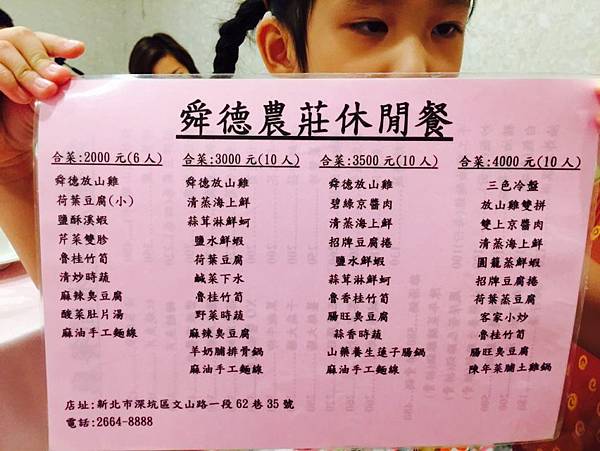 舜德農莊休閒餐
合菜:2000元(6人)
舜德放山雞
荷葉豆腐(小)
鹽酥溪蝦
芹菜雙胗
魯桂竹筍
清炒時蔬
麻辣臭豆腐
酸菜肚片湯
麻油手工麵線
合菜:3000元(10人)
舜德放山雞
清蒸海上鮮
蒜茸淋鮮蚵
鹽水鮮蝦
荷葉豆腐
鹹菜下水
魯桂竹筍
野菜時蔬
麻辣臭豆腐
羊奶脯排骨鍋
麻油手工麵線
合菜:3500元(10人)
舜德放山雞
碧綠京醬肉
清蒸海上鮮
招牌豆腐捲
鹽水鮮蝦
蒜茸淋鮮蚵
魯香桂竹筍
腸旺臭豆腐
蒜香時蔬
山藥養生蓮子腸鍋
麻油手工麵線
合菜:4000元(10人)
三色冷盤
放山雞雙拼
雙上京醬肉
清蒸海上鮮
圓籠蒸鮮蝦
招牌豆腐捲
荷葉蒸豆腐
客家小炒
魯桂竹筍
腸旺臭豆腐
陳年菜脯土雞鍋
店址:新北市深坑區文山路一段62巷35號
電話:2664-8888